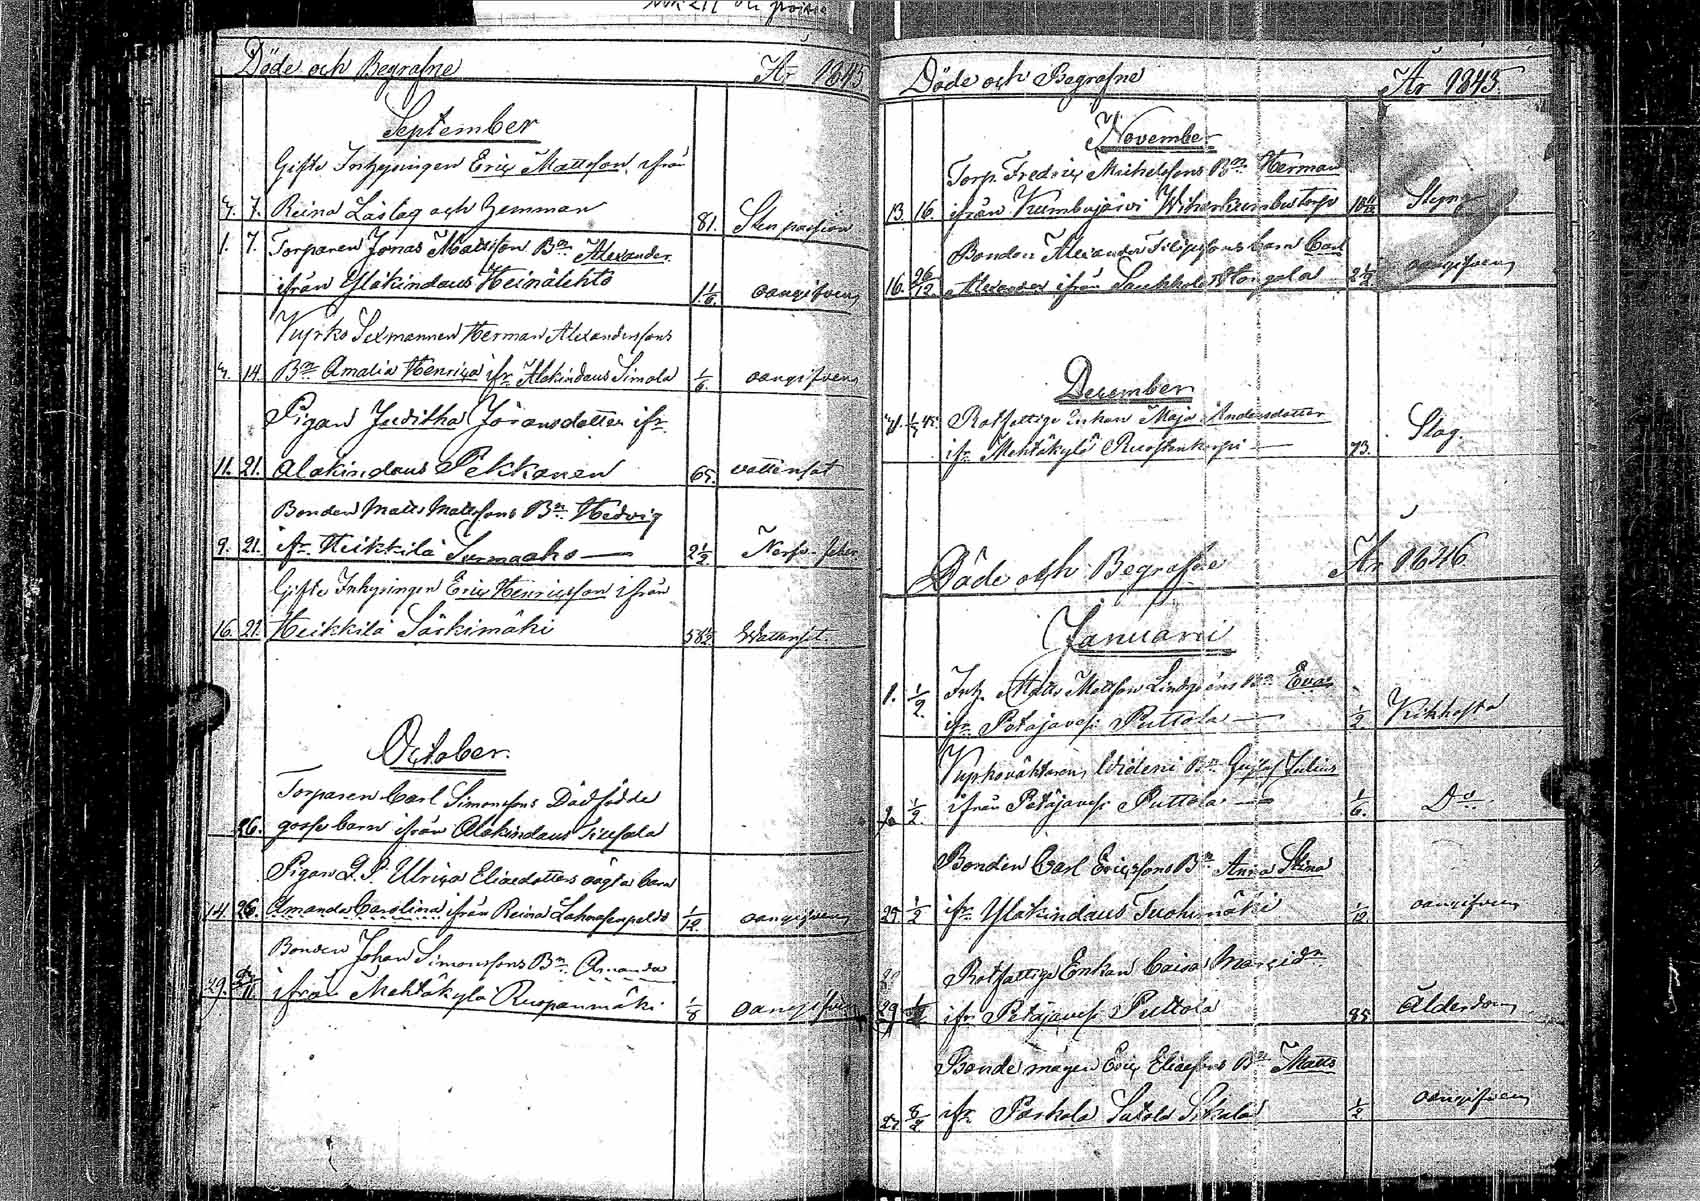 Döde och Begrafne År 1845
September
Gifte Inhysingen Eriq Mattsson ifrån
7. Reina Låstag och Hemman 81. Sten passion
1. 7. Torparen Jonas Mattsson Bn Alexander
ifrån Yläkindaus Heinälehto 1 1/6 oangifven
Kyrko Sexmannen Herman Alexanderssons
14. Bn Amalia Henrica ifr Alakindaus Simola 1/6. oangifven
Pigan Juditha Jöransdotter ifr.
11. 21. Alakindaus Pekkanen 65. vattensot
Bonden Matts Mattssons Bn Hedvig
9. 21. ifr. Heikkilä Surmaaho — 2 1/2 Nerf-feber
Gifte Inhysingen Eriq Henricsson ifrån
16. 21. Heikkilä Särkimäki 58 1/2 Wattensot.
October.
Torparen Carl Simonssons Dödfödda
26. gosse barn ifrån Alakindaus
Pigan Ulrica Eliaedotters oägta barn
14. 26. Amanda Carolina ifrån Reina 1/12. oangifven
Bonden Johan Simonssons Bn. Amanda
29. ifrån Mehtäkylä Ruspanmäki 1/8 oangifven
Döde och Begrafne År 1845.
November
Torp. Fredriq Michelssons Bn Herman
13. 16. ifrån Kumbujärvi
Bonden Alexander Filipssons barn Carl
16. 26/12. Alexander ifrån Saukkola Hongola 2 1/2. oangifven
December
Rotfattige Enkan Maja Andersdotter
ifr Mehtäkylä Ruostenkorpi — 73. Slag.
Döde och Begrafne År 1846
Januarii
1. 1/2. Inh. Matts Mattsson Lindgréns Bn Eva
ifr. Petäjavesi Puttola — 1/2. Kikhosta
Kyrkoväktaren Wideni Bn Gustaf Julius
1/2. ifrån Petäjavesi Puttola — 1/6. Do
Bonden Carl Ericssons Bn Anna Stina
25 1/2 ifr Yläkindaus Tuohimäki 1/12 oangifven
Rotfattige Enkan Caisa
29 ifr Petäjavesi Puttola 85 Ålderdom
Bonde mågen Eriq Eliaessons Bn Matts
27. 8/2 ifr Paskala Satola 1/2 oangifven